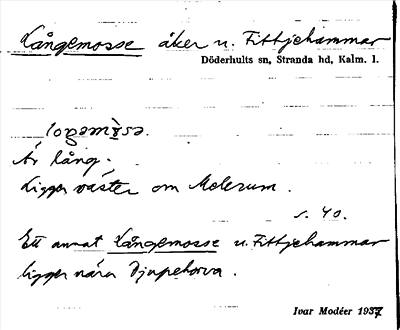 Långemosse åker u. Fittjehammar
Döderhults sn, Stranda hd, Kalm. l.
Är lång.
Ligger väster om Molerum.
s. 40.
Ett annat Långemosse u. Fittjehammar
ligger nära Djupehorva.
Ivar Modéer 1937